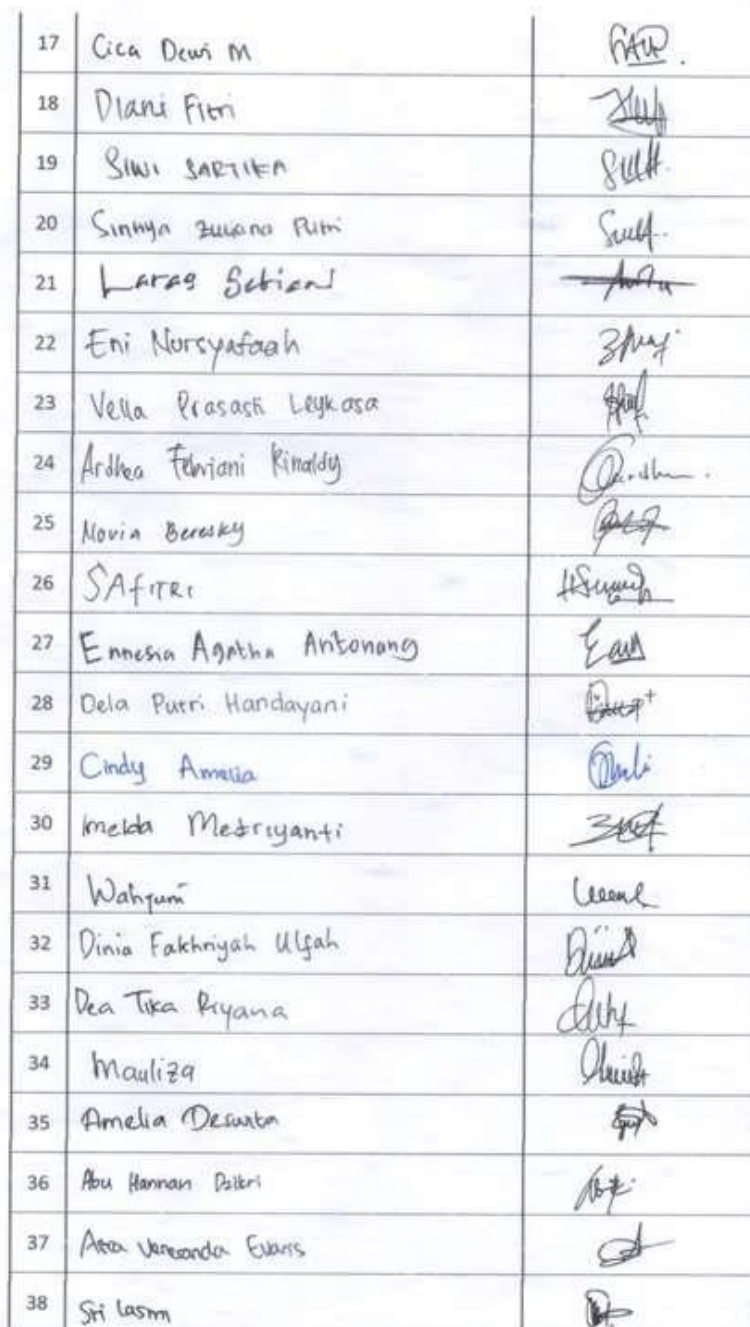 17 Cica Dewi M
18 Diani Fitri
19 SIWI SARTIKA
20 Sinnya Putri
21 Laras Setiani
22 Eni Nursyafaah
23 Vella Prasasti Leykasa
24 Ardhea Febriani Rinaldy
25 Novia Beresky
26 SAFITRI
27 Ennesia Agatha Antonang
28 Dela Putri Handayani
29 Cindy Amelia
30 Imelda Medriyanti
31 Wahyuni
32 Dinia Fakhriyah Ulfah
33 Dea Tika Riyana
34 Mauliza
35 Amelia
36 Abu Hannan Dzikri
37 Evans
38 Sri Lasmi